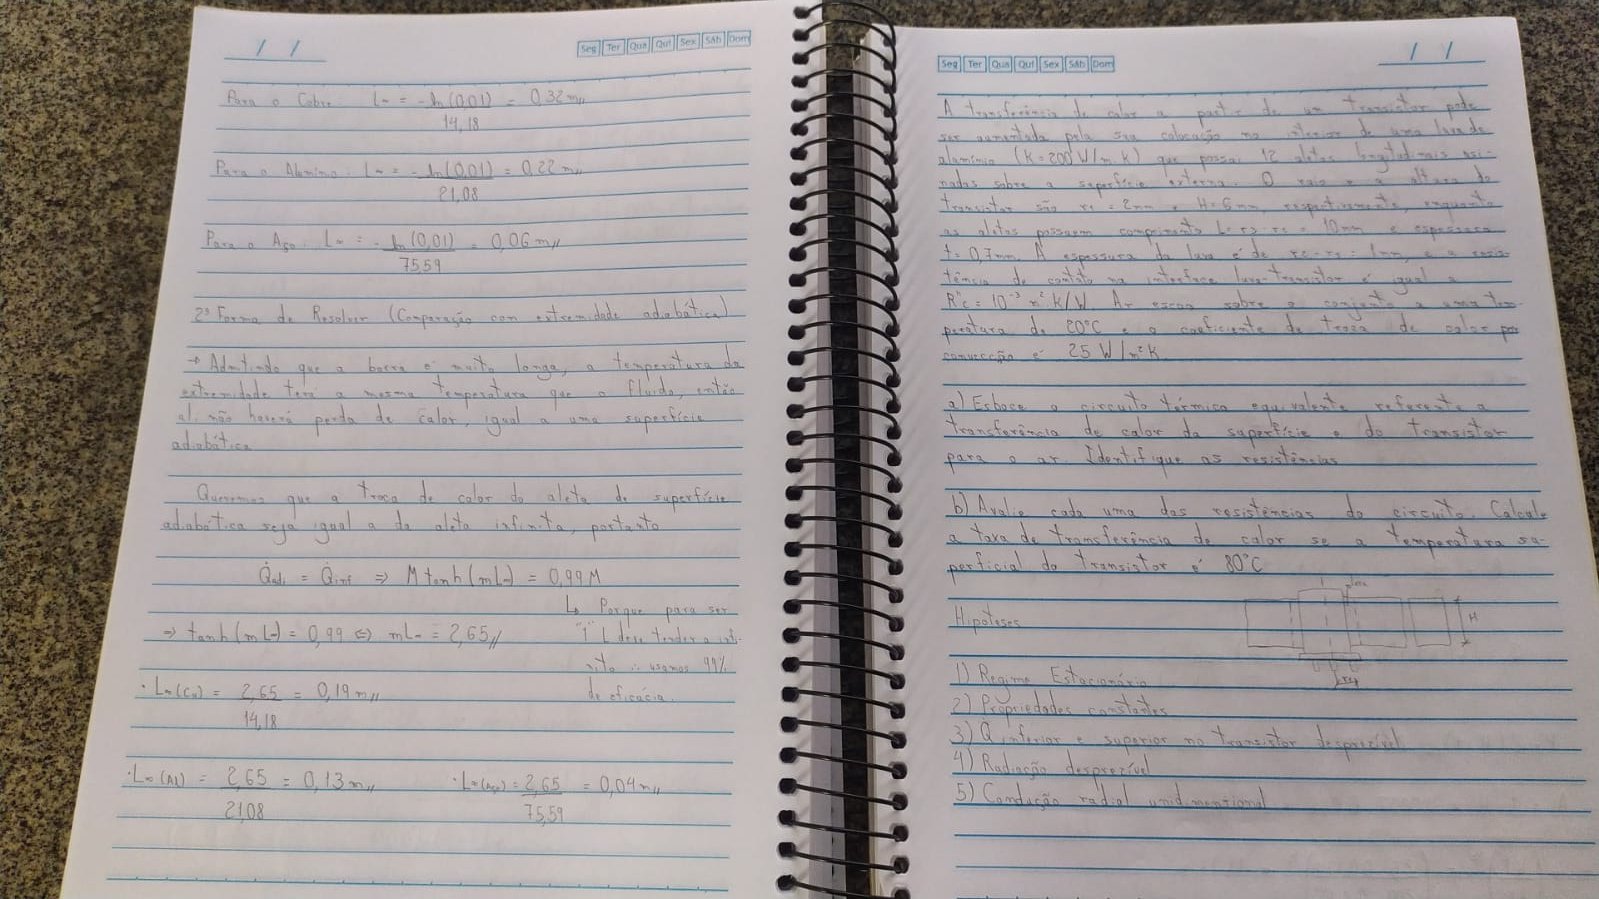 / /
Seg Ter Qua Qui Sex Sáb Dom
Para o Cobre: L∞ = -ln(0,01) = 0,32 m//
14,18
Para o Alumínio: L∞ = -ln(0,01) = 0,22 m//
21,08
Para o Aço: L∞ = -ln(0,01) = 0,06 m//
75,59
2ª Forma de Resolver (Comparação com extremidade adiabática)
→ Admitindo que a barra é muito longa, a temperatura da
extremidade terá a mesma temperatura que o fluido, então
ali não haverá perda de calor, igual a uma superfície
adiabática
Queremos que a troca de calor da aleta de superfície
adiabática seja igual a da aleta infinita, portanto
Q̇adi = Q̇inf ⇒ M tanh(mL∞) = 0,99M
↳ Porque para ser
⇒ tanh(mL∞) = 0,99 ⇔ mL∞ = 2,65//
"1" L deve tender a infi-
nito ∴ usamos 99%
de eficácia.
· L∞(Cu) = 2,65 = 0,19 m//
14,18
· L∞(Al) = 2,65 = 0,13 m// · L∞(Aço) = 2,65 = 0,04 m//
21,08 75,59
Seg Ter Qua Qui Sex Sáb Dom
/ /
A transferência de calor a partir de um transistor pode
ser aumentada pela sua colocação no interior de uma luva de
alumínio (K=200 W/m.K) que possui 12 aletas longitudinais usi-
nadas sobre a superfície externa. O raio e a altura do
transistor são r1 = 2mm e H=6mm, respectivamente, enquanto
as aletas possuem comprimento L= r3-r2 = 10mm e espessura
t= 0,7mm. A espessura da luva é de r2-r1 = 1mm, e a resis-
tência de contato na interface luva-transistor é igual a
R"c = 10⁻³ m².K/W Ar escoa sobre o conjunto a uma tem-
peratura de 20°C e o coeficiente de troca de calor por
convecção é 25 W/m²K.
a) Esboce o circuito térmico equivalente referente a
transferência de calor da superfície do transistor
para o ar. Identifique as resistências
b) Avalie cada uma das resistências do circuito. Calcule
a taxa de transferência de calor se a temperatura su-
perficial do transistor é 80°C
Hipóteses
H
1) Regime Estacionário
2) Propriedades constantes
3) Q̇ inferior e superior no transistor desprezível
4) Radiação desprezível
5) Condução radial unidimensional